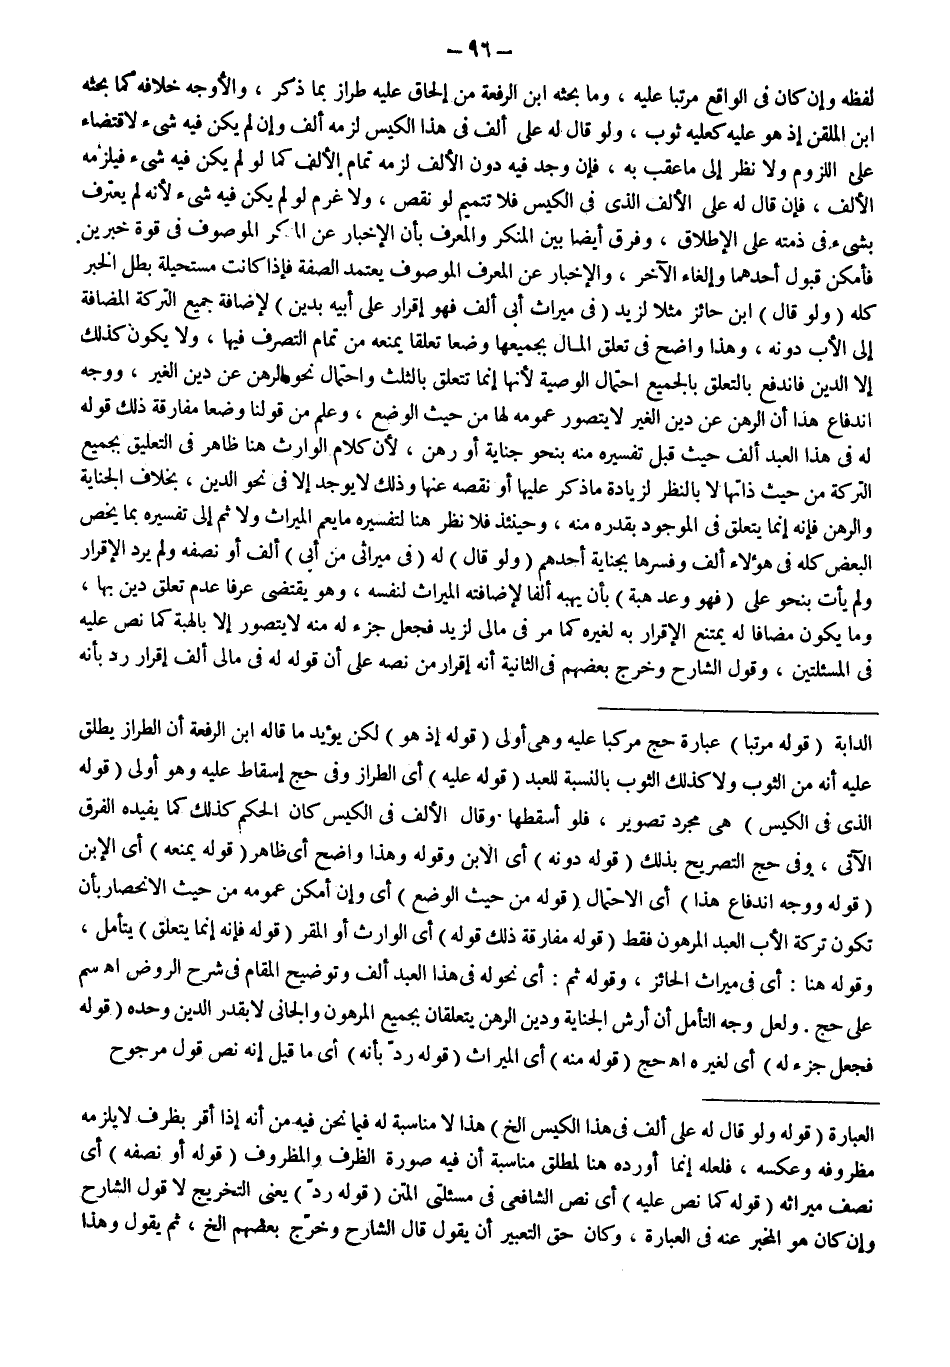 — ٩٦ —
لفظه وإن كان فى الواقع مرتبا عليه ، وما بحثه ابن الرفعة من إلحاق عليه طراز بما ذكر ، والأوجه خلافه كما بحثه
ابن الملقن إذ هو عليه كعليه ثوب ، ولو قال له على ألف فى هذا الكيس لزمه ألف وإن لم يكن فيه شىء لاقتضاء
على اللزوم ولا نظر إلى ماعقب به ، فإن وجد فيه دون الألف لزمه تمام الألف كما لو لم يكن فيه شىء فيلزمه
الألف ، فإن قال له على الألف الذى فى الكيس فلا تتميم لو نقص ، ولا غرم لو لم يكن فيه شىء لأنه لم يعترف
بشىء فى ذمته على الإطلاق ، وفرق أيضا بين المنكر والمعرف بأن الإخبار عن المنكر الموصوف فى قوة خبرين
فأمكن قبول أحدهما وإلغاء الآخر ، والإخبار عن المعرف الموصوف يعتمد الصفة فإذا كانت مستحيلة بطل الخبر
كله ( ولو قال ) ابن حائز مثلا لزيد ( فى ميراث أبى ألف فهو إقرار على أبيه بدين ) لإضافة جميع التركة المضافة
إلى الأب دونه ، وهذا واضح فى تعلق المال بجميعها وضعا تعلقا يمنعه من تمام التصرف فيها ، ولا يكون كذلك
إلا الدين فاندفع بالتعلق بالجميع احتمال الوصية لأنها إنما تتعلق بالثلث واحتمال نحو الرهن عن دين الغير ، ووجه
اندفاع هذا أن الرهن عن دين الغير لايتصور عمومه لها من حيث الوضع ، وعلم من قولنا وضعا مفارقة ذلك قوله
له فى هذا العبد ألف حيث قبل تفسيره منه بنحو جناية أو رهن ، لأن كلام الوارث هنا ظاهر فى التعليق بجميع
التركة من حيث ذاتها لا بالنظر لزيادة ماذكر عليها أو نقصه عنها وذلك لايوجد إلا فى نحو الدين ، بخلاف الجناية
والرهن فإنه إنما يتعلق فى الموجود بقدره منه ، وحينئذ فلا نظر هنا لتفسيره مايعم الميراث ولا ثم إلى تفسيره بما يخص
البعض كله فى هؤلاء ألف وفسرها بجناية أحدهم ( ولو قال ) له ( فى ميراثى من أبى ) ألف أو نصفه ولم يرد الإقرار
ولم يأت بنحو على ( فهو وعد هبة ) بأن يهبه ألفا لإضافته الميراث لنفسه ، وهو يقتضى عرفا عدم تعلق دين بها ،
وما يكون مضافا له يمتنع الإقرار به لغيره كما مر فى مالى لزيد فجعل جزء له منه لايتصور إلا بالهبة كما نص عليه
فى المسئلتين ، وقول الشارح وخرج بعضهم فى الثانية أنه إقرار من نصه على أن قوله له فى مالى ألف إقرار رد بأنه
الدابة ( قوله مرتبا ) عبارة حج مركبا عليه وهى أولى ( قوله إذ هو ) لكن يؤيد ما قاله ابن الرفعة أن الطراز يطلق
عليه أنه من الثوب ولا كذلك الثوب بالنسبة للعبد ( قوله عليه ) أى الطراز وفى حج إسقاط عليه وهو أولى ( قوله
الذى فى الكيس ) هى مجرد تصوير ، فلو أسقطها وقال الألف فى الكيس كان الحكم كذلك كما يفيده الفرق
الآتى ، وفى حج التصريح بذلك ( قوله دونه ) أى الابن وقوله وهذا واضح أى ظاهر ( قوله يمنعه ) أى الإبن
( قوله ووجه اندفاع هذا ) أى الاحتمال ( قوله من حيث الوضع ) أى وإن أمكن عمومه من حيث الانحصار بأن
تكون تركة الأب العبد المرهون فقط ( قوله مفارقة ذلك قوله ) أى الوارث أو المقر ( قوله فإنه إنما يتعلق ) يتأمل ،
وقوله هنا : أى فى ميراث الحائز ، وقوله ثم : أى نحوله فى هذا العبد ألف وتوضيح المقام فى شرح الروض اه سم
على حج . ولعل وجه التأمل أن أرش الجناية ودين الرهن يتعلقان بجميع المرهون والجانى لابقدر الدين وحده ( قوله
فجعل جزء له ) أى لغيره اه حج ( قوله منه ) أى الميراث ( قوله ردّ بأنه ) أى ما قيل إنه نص قول مرجوح
العبارة ( قوله ولو قال له على ألف فى هذا الكيس الخ ) هذا لا مناسبة له فيما نحن فيه من أنه إذا أقر بظرف لايلزمه
مظروفه وعكسه ، فلعله إنما أورده هنا لمطلق مناسبة أن فيه صورة الظرف والمظروف ( قوله أو نصفه ) أى
نصف ميراثه ( قوله كما نص عليه ) أى نص الشافعى فى مسئلتى المتن ( قوله ردّ ) يعنى التخريج لا قول الشارح
وإن كان هو المخبر عنه فى العبارة ، وكان حق التعبير أن يقول قال الشارح وخرّج بعضهم الخ ، ثم يقول وهذا